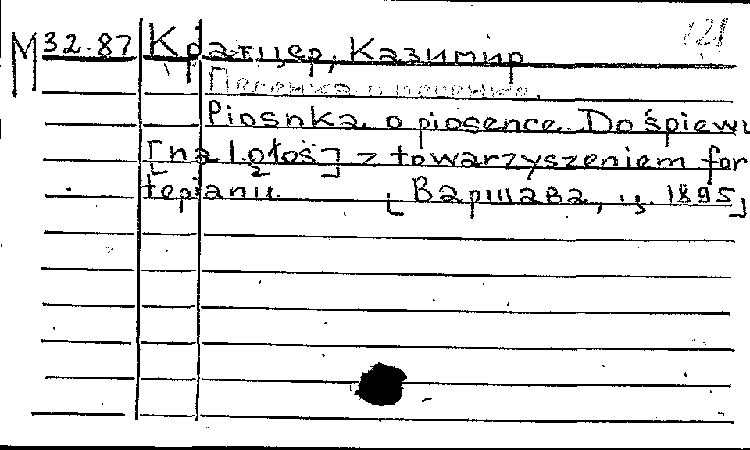 121
М 32.87 Кратцер, Казимир
Песенка о песенке.
Piosnka o piosence. Do śpiewu
[na 1 głos] z towarzyszeniem for
tepianu. [Варшава, ц. 1895]